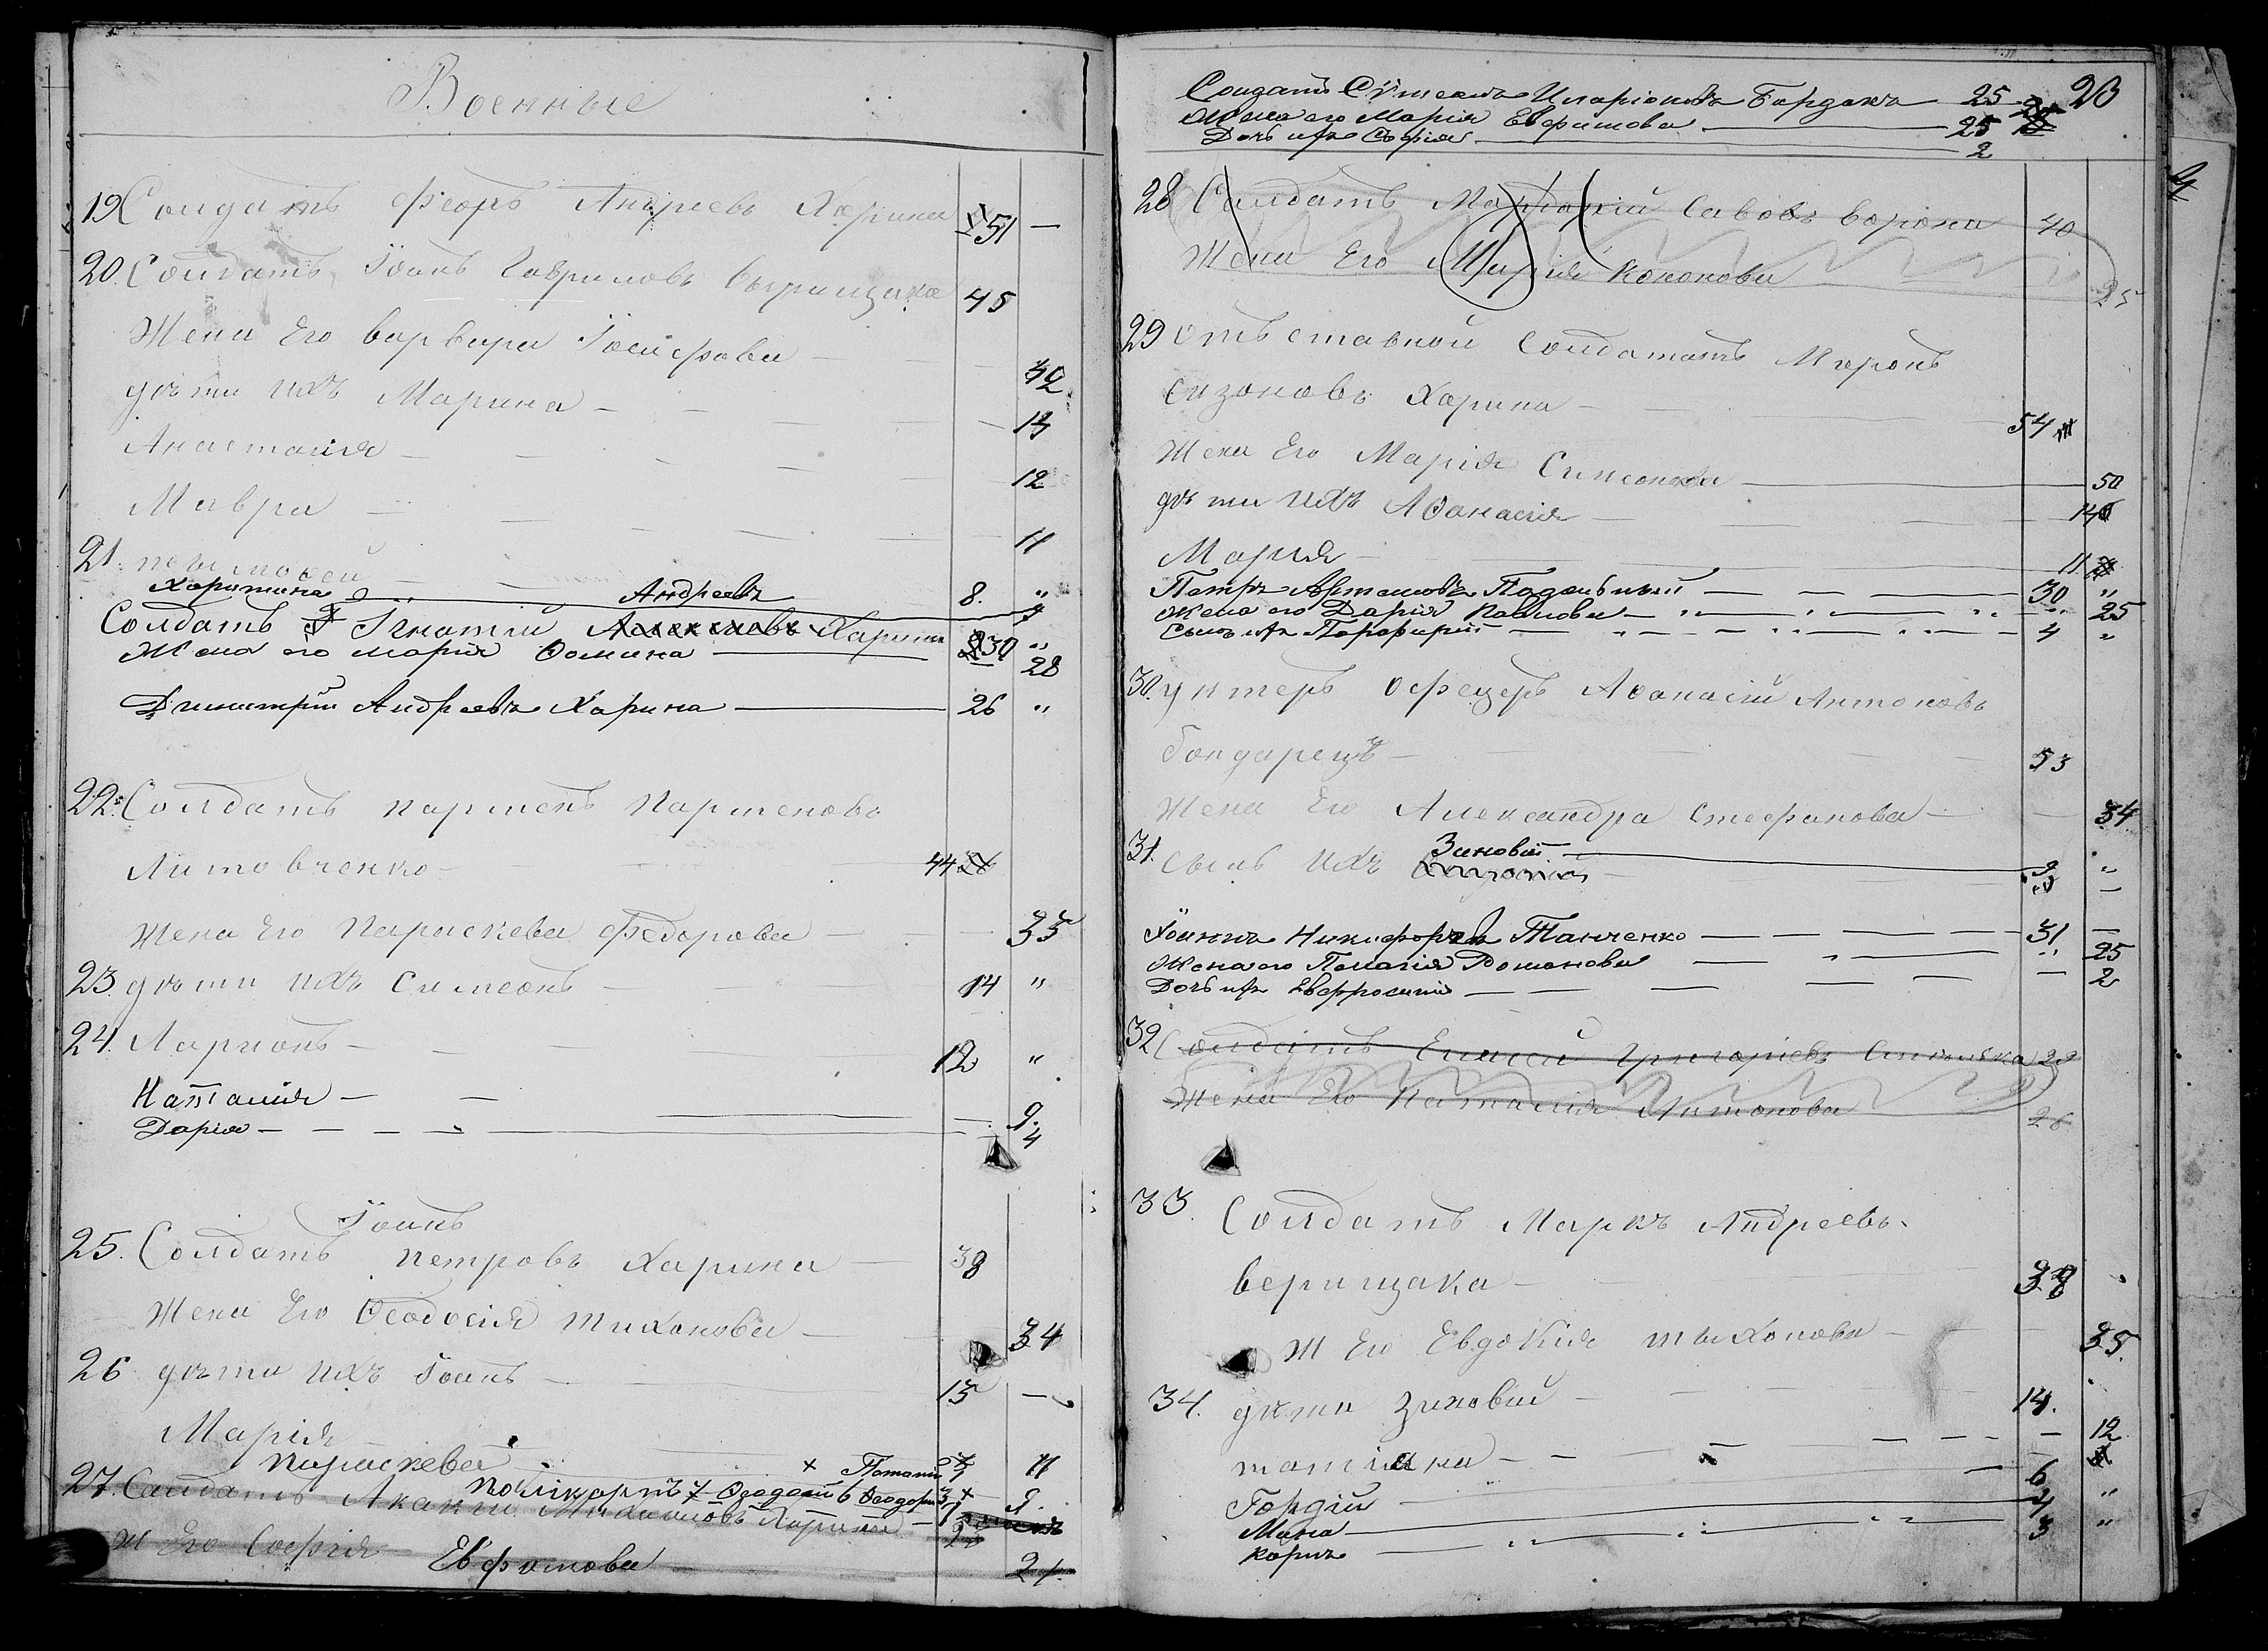 Военные
19 Солдатъ Феоръ Андреевъ Харина 51 —
20. Солдатъ Іоанъ Гавриловъ Вырищака 45
Жена Его варвара Іосифова — 42
дѣти ихъ Марина — 14
Анастасия — 12
Мавра — 11
21. тимофей —
Харитина Андреевъ 8. „
Солдатъ Ігнатій Харина 30 „
Жена его Марія Фомина — 28
Димитрій Андреевъ Харина — 26 „
22. Солдатъ парменъ Парменовъ
Литовченко — 44
Жена Его Параскева Федорова — 33
23. дѣти ихъ Симеонъ — 14 „
24. Ларионъ — 12 „
Наталия — 9.
Дарія — 4
Іоанъ
25. Солдатъ петровъ Харина — 38
Жена Его Феодосія тихонова — 34
26 дѣти ихъ Іоанъ — 13 —
Марія
параскева 11
Поликарпъ
27. Салдатъ Акакии Харина
Ж Его Софія Евфимова 24.
23
Солдатъ Сѵмеонъ Иларіоновъ Бардакъ 25
Жена его Марія Евфимова — 25
Дочь ихъ Софія — 2
28 Салдатъ Мардарий Савовъ ворона 40
Жена Его Марія Кононова 25
29 отъставной Солдатъ Миронъ
сизоновъ Харина — 54
Жена Его Марія Симонова — 50
дѣти ихъ Афанасия — 14
Мария — 11
Петръ Артемовъ Подольный — 30 „
Жена его Дарія Павлова — „ 25
Сынъ ихъ Порфирій — 4 „
30. унтеръ офецеръ Афанасій Антоновъ
бондарецъ — 53
Жена Его Александра стефанова — 34
31. сынъ ихъ Зиновій — 9 „
Іоаннъ Никифоровъ Танченко — 31 —
Жена его Пелагія Романова — „ 25
Дочь ихъ Евфросинія — 2
32 Солдатъ Елисей Григориевъ
Жена Его Наталия Антонова 26
33. Солдатъ Маркъ Андреевъ
верищака — 38
Ж Его Евдокия тихонова — 35.
34. дѣти Зиновий — 14.
татіана — 12
Гордій — 6 „
Мина — 4 „
Карпъ — 3 „